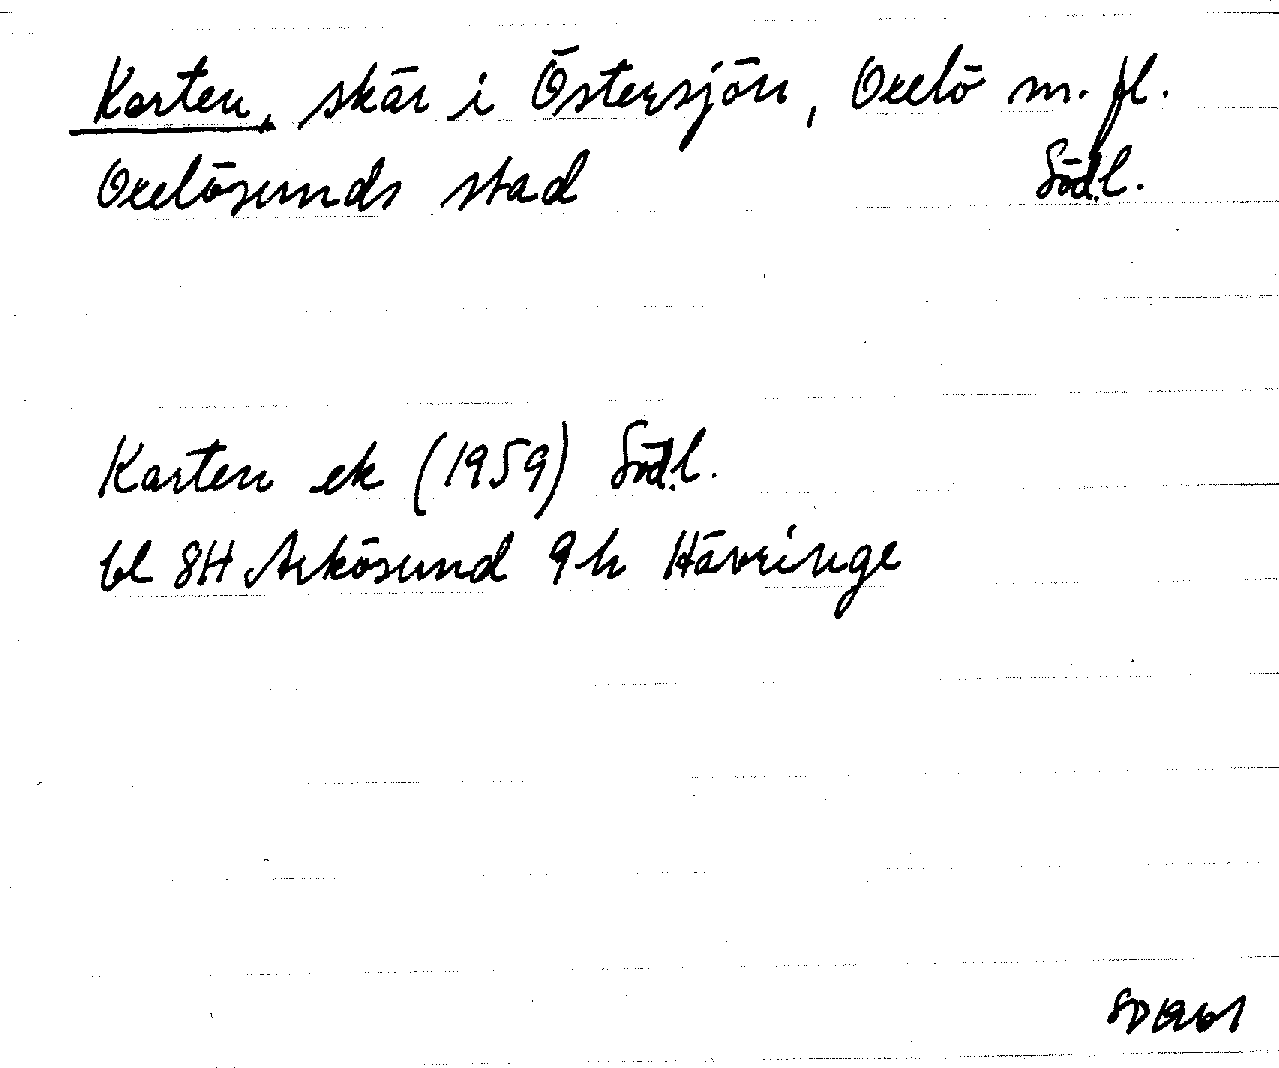 Karten, skär i Östersjön, Oxelö m. fl.
Oxelösunds stad Södl.
Karten ek (1959) Södl.
bl 8H Arkösund 9h Hävringe
SD 1961